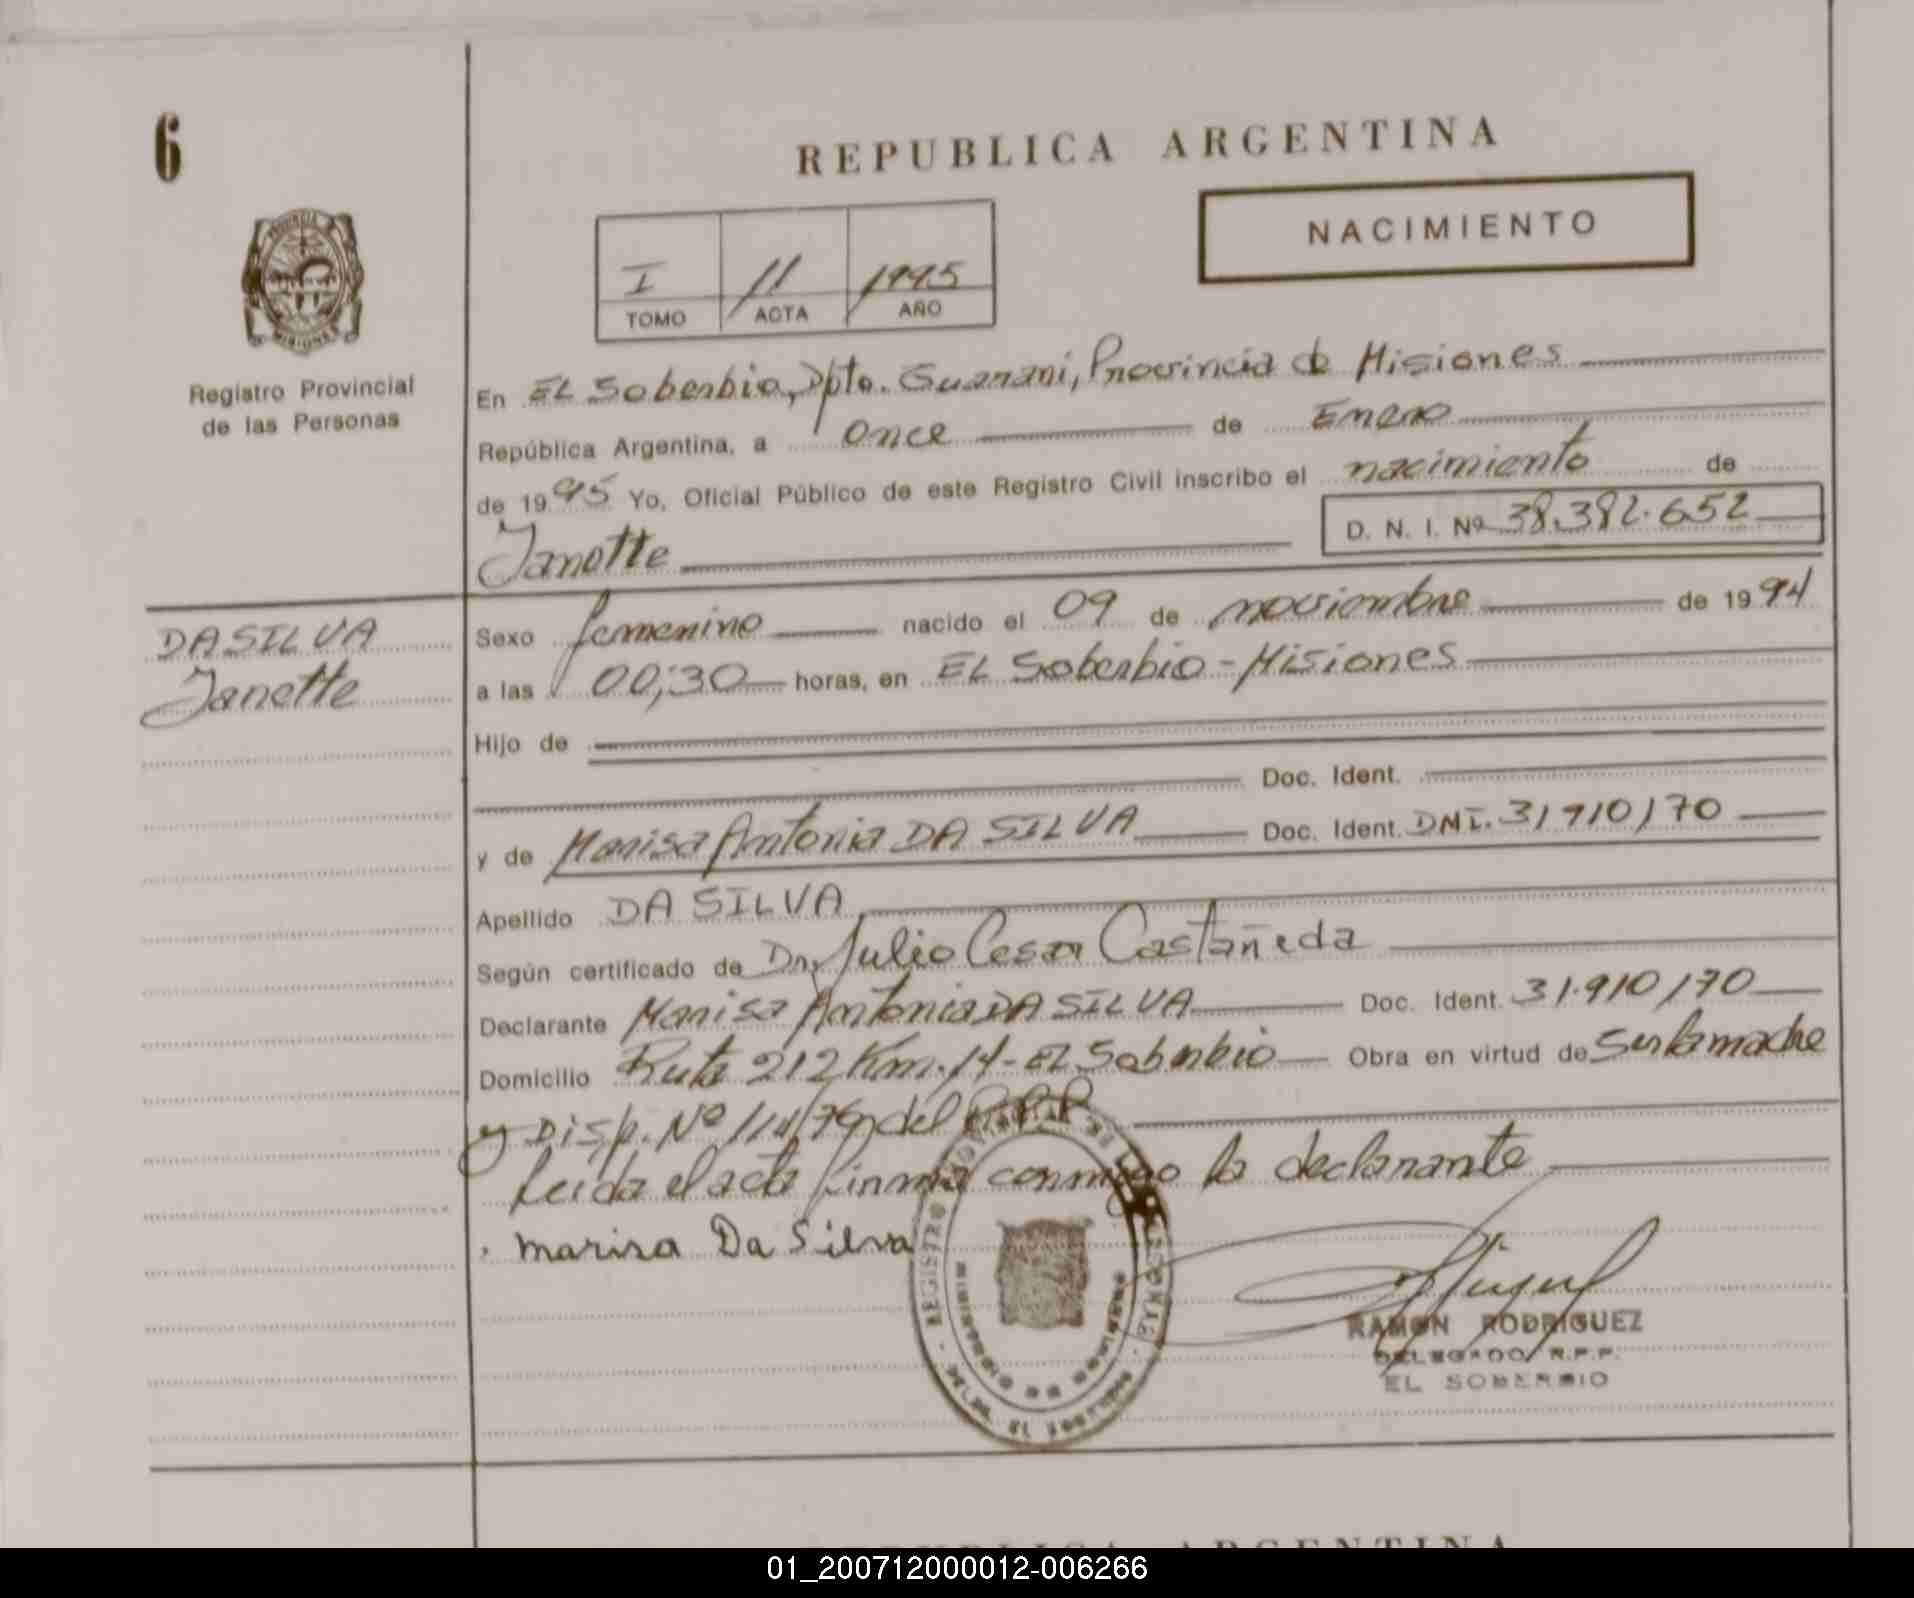 6
REPUBLICA ARGENTINA
NACIMIENTO
I 11 1995
TOMO ACTA AÑO
PROVINCIA
MISIONES
Registro Provincial
de las Personas
En EL Soberbio, Dpto. Guarani, Provincia de Misiones
República Argentina, a Once de Enero
de 1995 Yo, Oficial Público de este Registro Civil inscribo el nacimiento de
Janette D. N. I. Nº 38.382.652
DA SILVA
Janette
Sexo femenino nacido el 09 de noviembre de 1994
a las 00;30 horas, en EL Soberbio - Misiones
Hijo de
Doc. Ident.
y de Marisa Antonia DA SILVA Doc. Ident. DNI. 31910170
Apellido DA SILVA
Según certificado de Dr. Julio Cesar Castañeda
Declarante Marisa Antonia DA SILVA Doc. Ident. 31.910170
Domicilio Ruta 212 Km. 14 - EL Soberbio Obra en virtud de Ser la madre
y Disp. Nº 114/79 del R.P.P
Leida el acta firma conmigo la declarante
Marisa Da Silva
RAMON RODRIGUEZ
DELEGADO R.P.P.
EL SOBERBIO
REPUBLICA ARGENTINA
01_200712000012-006266